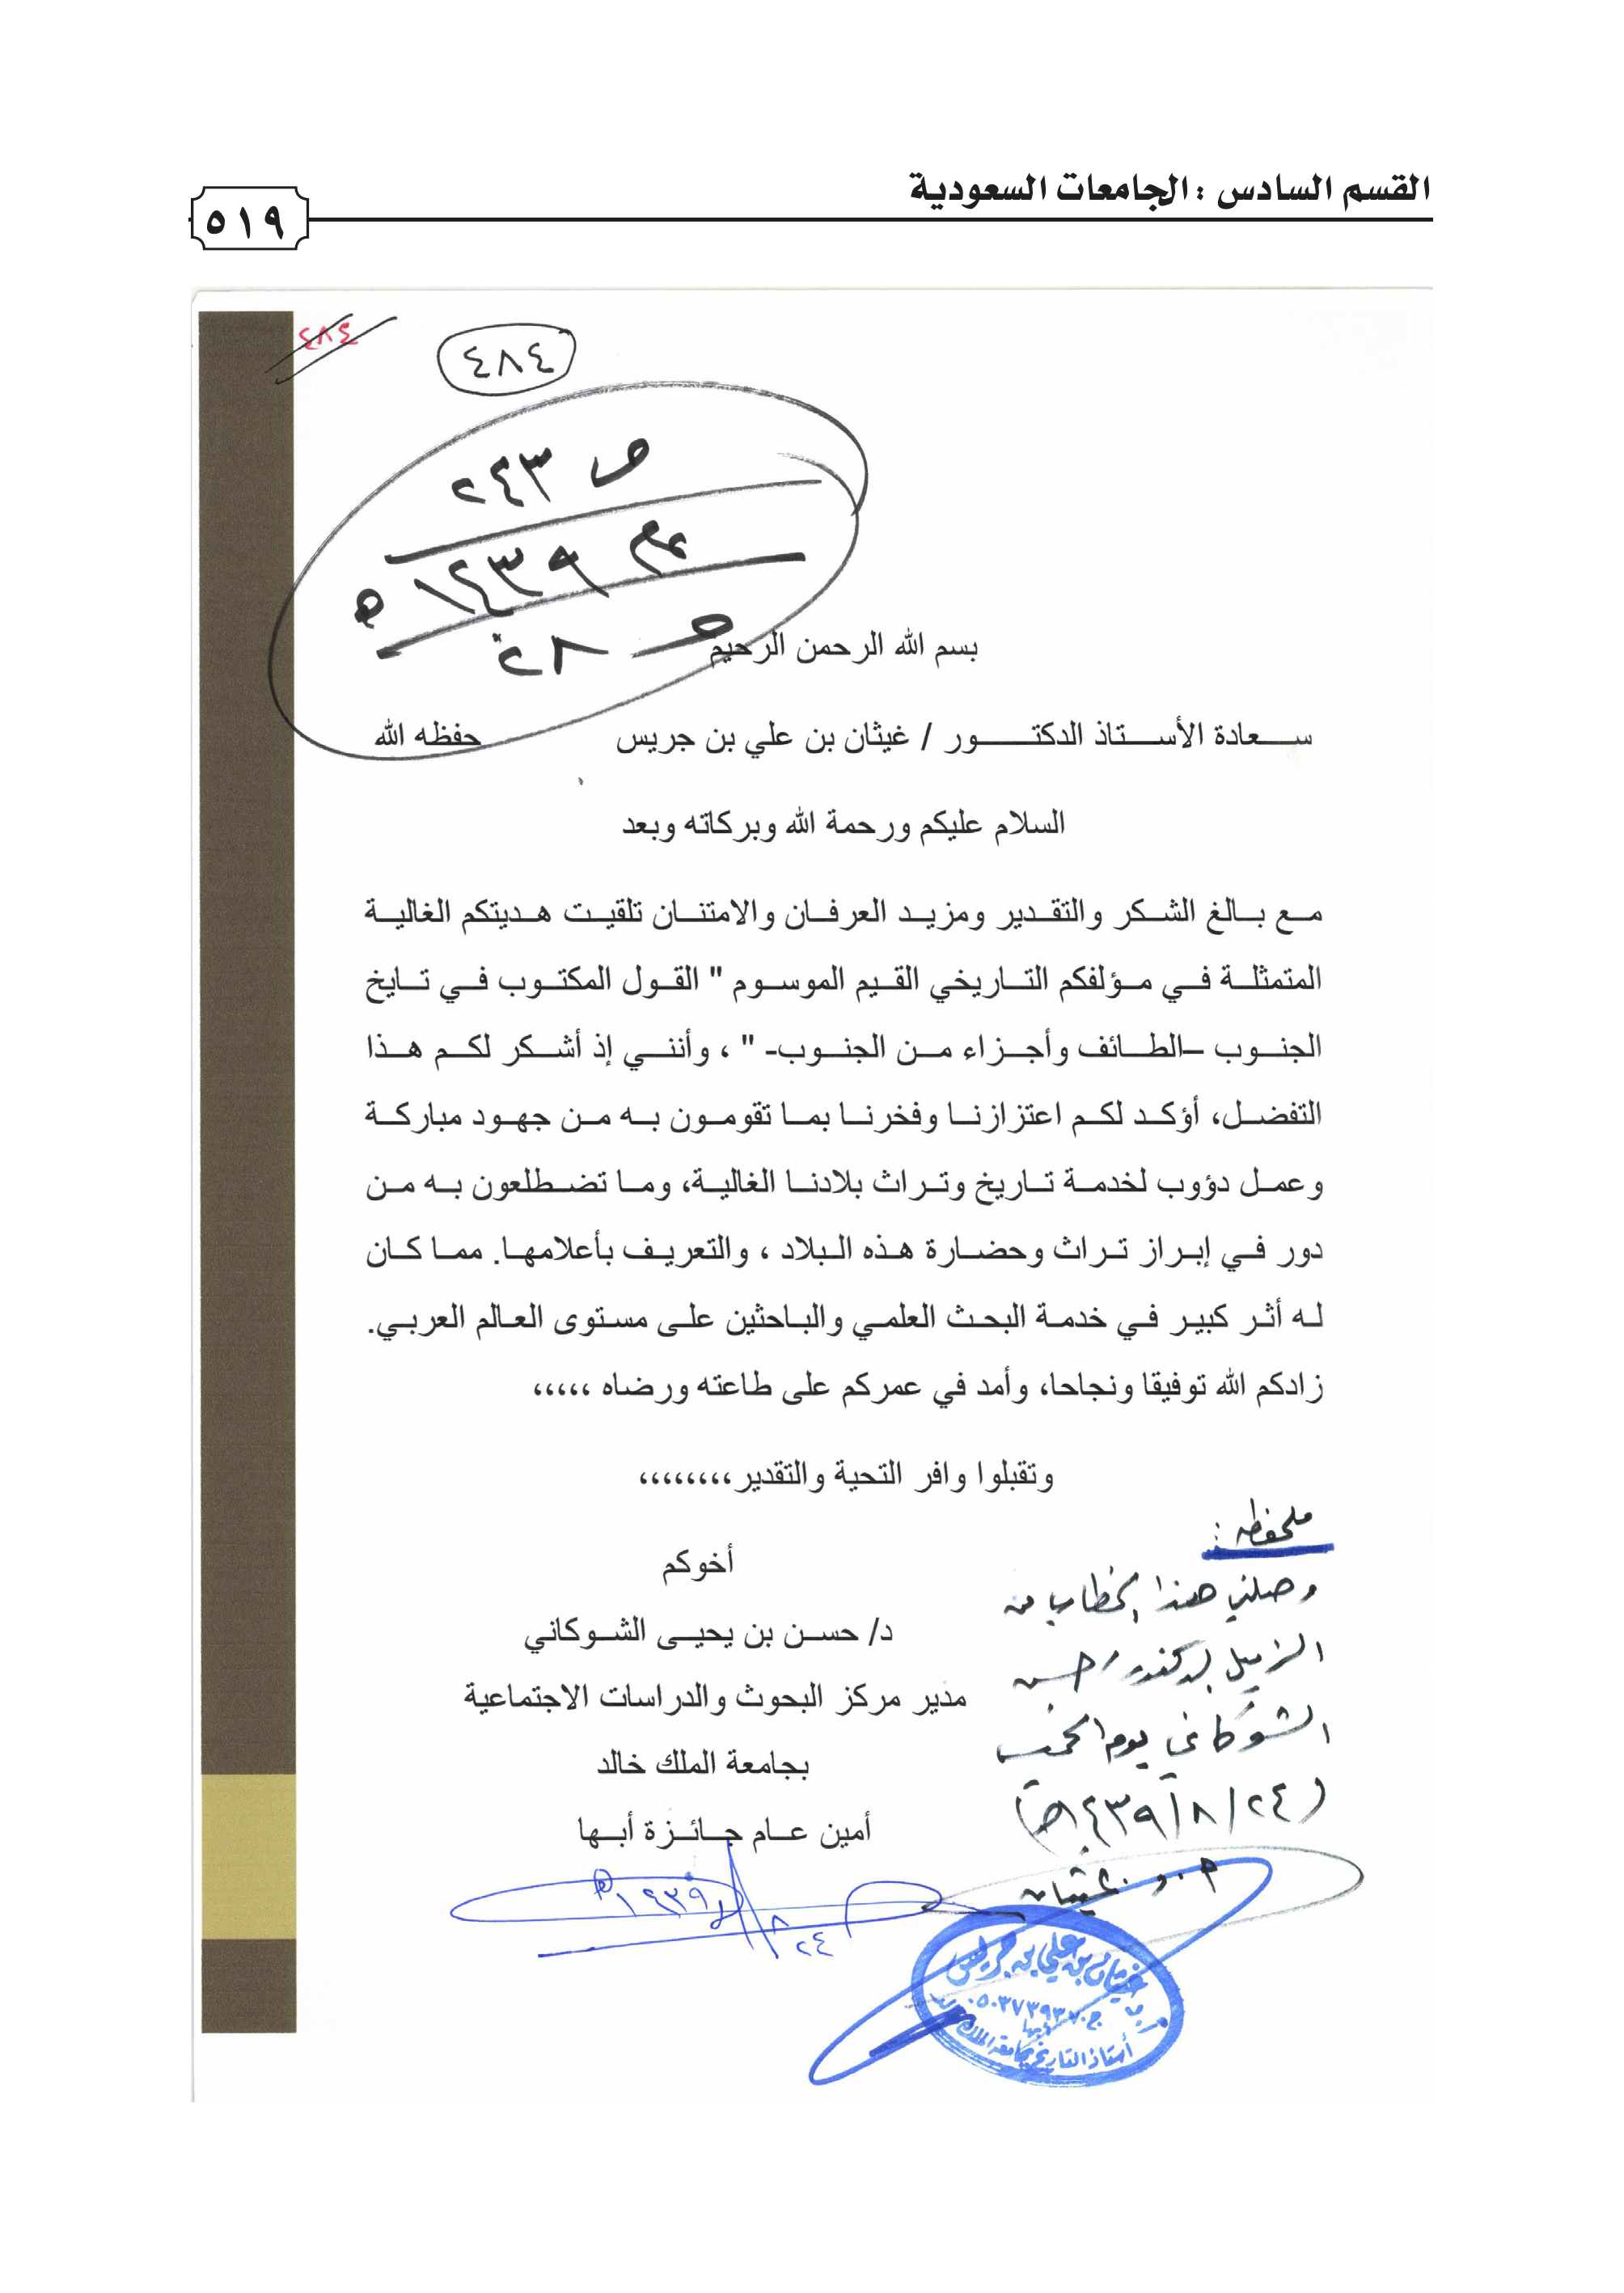 القسم السادس : الجامعات السعودية
٥١٩
٤٨٤
٤٨٤
ص ٢٤٣
عام ١٤٣٩ هـ
ص ٢٨
بسم الله الرحمن الرحيم
سعادة الأستاذ الدكتور / غيثان بن علي بن جريس حفظه الله
السلام عليكم ورحمة الله وبركاته وبعد
مع بالغ الشكر والتقدير ومزيد العرفان والامتنان تلقيت هديتكم الغالية
المتمثلة في مؤلفكم التاريخي القيم الموسوم " القول المكتوب في تايخ
الجنوب –الطائف وأجزاء من الجنوب- " ، وأنني إذ أشكر لكم هذا
التفضل، أؤكد لكم اعتزازنا وفخرنا بما تقومون به من جهود مباركة
وعمل دؤوب لخدمة تاريخ وتراث بلادنا الغالية، وما تضطلعون به من
دور في إبراز تراث وحضارة هذه البلاد ، والتعريف بأعلامها. مما كان
له أثر كبير في خدمة البحث العلمي والباحثين على مستوى العالم العربي.
زادكم الله توفيقا ونجاحا، وأمد في عمركم على طاعته ورضاه ،،،،،
وتقبلوا وافر التحية والتقدير،،،،،،،،
أخوكم
د/ حسن بن يحيى الشوكاني
مدير مركز البحوث والدراسات الاجتماعية
بجامعة الملك خالد
أمين عام جائزة أبها
٢٤ / ٨ / ١٤٣٩هـ
ملحفظه :
وصلني هذا الخطاب من
الزميل الدكتور / حسن
الشوكاني يوم الخميس
(٢٤/٨/١٤٣٩هـ)
أ . د . غيثان
أ.د. غيثان بن علي بن جريس
ج ٠٥٠٣٧٣٩٣٧٠
أبها
أستاذ التاريخ بجامعة الملك خالد